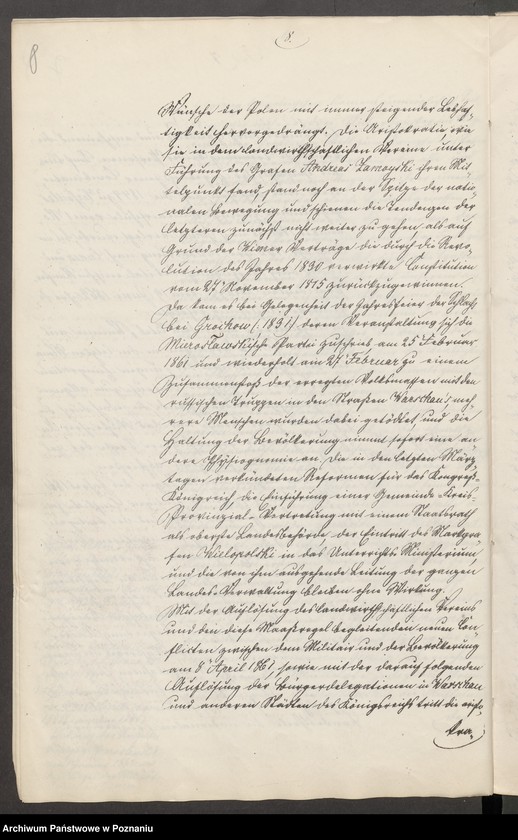 8
8.
Wünsche der Polen mit immer steigender Lebhaf-
tigkeit hervorgedrängt. Die Aristokratie, wie
sie in dem landwirthschaftlichen Vereine unter
Führung des Grafen Andreas Zamoyski ihren Mit-
telpunkt fand, stand noch an der Spitze der natio-
nalen Bewegung und schienen die Tendenzen der
letzteren zunächst nicht weiter zu gehen, als auf
Grund der Wiener Verträge die durch die Revo-
lution des Jahres 1830 verwirkte Constitution
vom 27 November 1815 zurückzugewinnen.
Da kam es bei Gelegenheit der Jahresfeier der Schlacht
bei Grochow (: 1831:) deren Veranstaltung sich die
Mieroslawskische Parthei zuschrieb am 25 Februar
1861 und wiederholt am 27 Februar zu einem
Zusammenstoß der erregten Volksmassen mit den
russischen Truppen in den Straßen Warschaus; meh
rere Menschen wurden dabei getödtet, und die
Haltung der Bevölkerung nimmt sofort eine an
dere Physiognomie an. Die in den letzten März-
tagen verkündeten Reformen für das Congreß-
Königreich, die Einführung einer Gemeinde Kreis-
Provinzial-Vertretung mit einem Staatsrath
als oberste Landesbehörde der Eintritt des Markgra-
fen Wielopolski in das Unterrichts Ministerium,
und die von ihm ausgehende Leitung der ganzen
Landes-Verwaltung blieben ohne Wirkung.
Mit der Auflösung des landwirthschaftlichen Vereins
und den diese Maaßregel begleitenden neuen Con-
flicten zwischen dem Militair und der Bevölkerung
am 8 April 1861, sowie mit der darauf folgenden
Auflösung der Bürgerdelegationen in Warschau
und anderen Städten des Königreichs tritt die aristo-
kra-
Archiwum Państwowe w Poznaniu